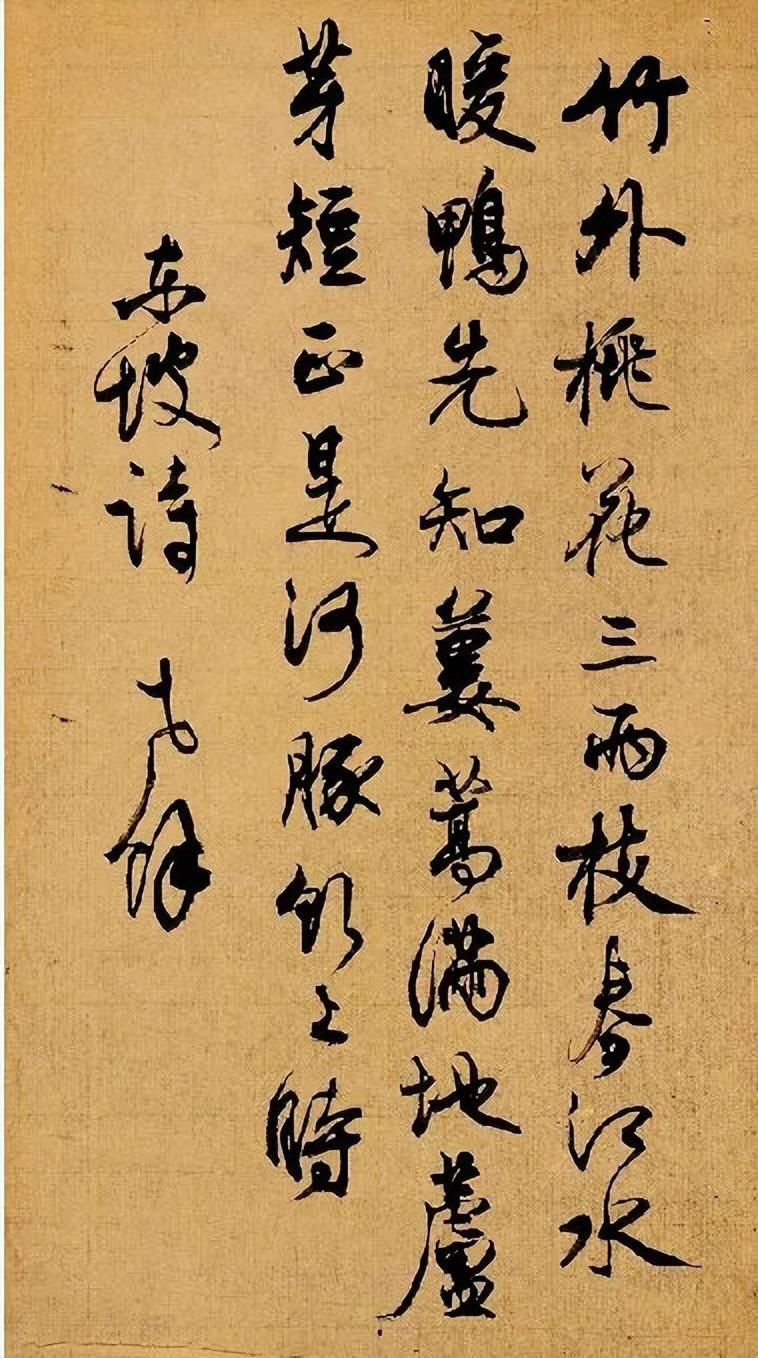 竹外桃花三兩枝春江水
暖鴨先知蔞蒿滿地蘆
芽短正是河豚欲上時
东坡诗